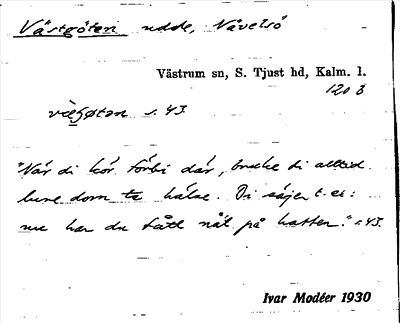 Västgöten udde, Návelsö
Västrum sn, S. Tjust hd, Kalm. l.
120 3
s. 43.
"När di kör förbi där, bruke di alltid
dom te hälse. Di säjer t. ex:
nu har du fått nåt på hatten." s. 43.
Ivar Modéer 1930